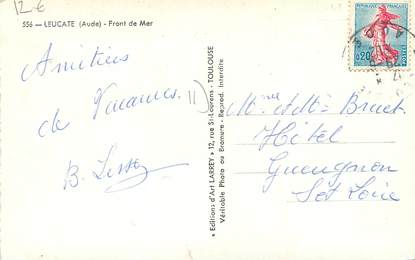 12-€
556 — LEUCATE (Aude) - Front de Mer
Amitiés
de Vacances
B.
★ Editions d'Art LARREY ★ 12, rue St-Laurens - TOULOUSE
Véritable Photo au Bromure - Reprod. Interdite
REPUBLIQUE FRANÇAISE
0,20
POSTES
Mme Bruet
Hôtel
Gueugnon
Set Loire